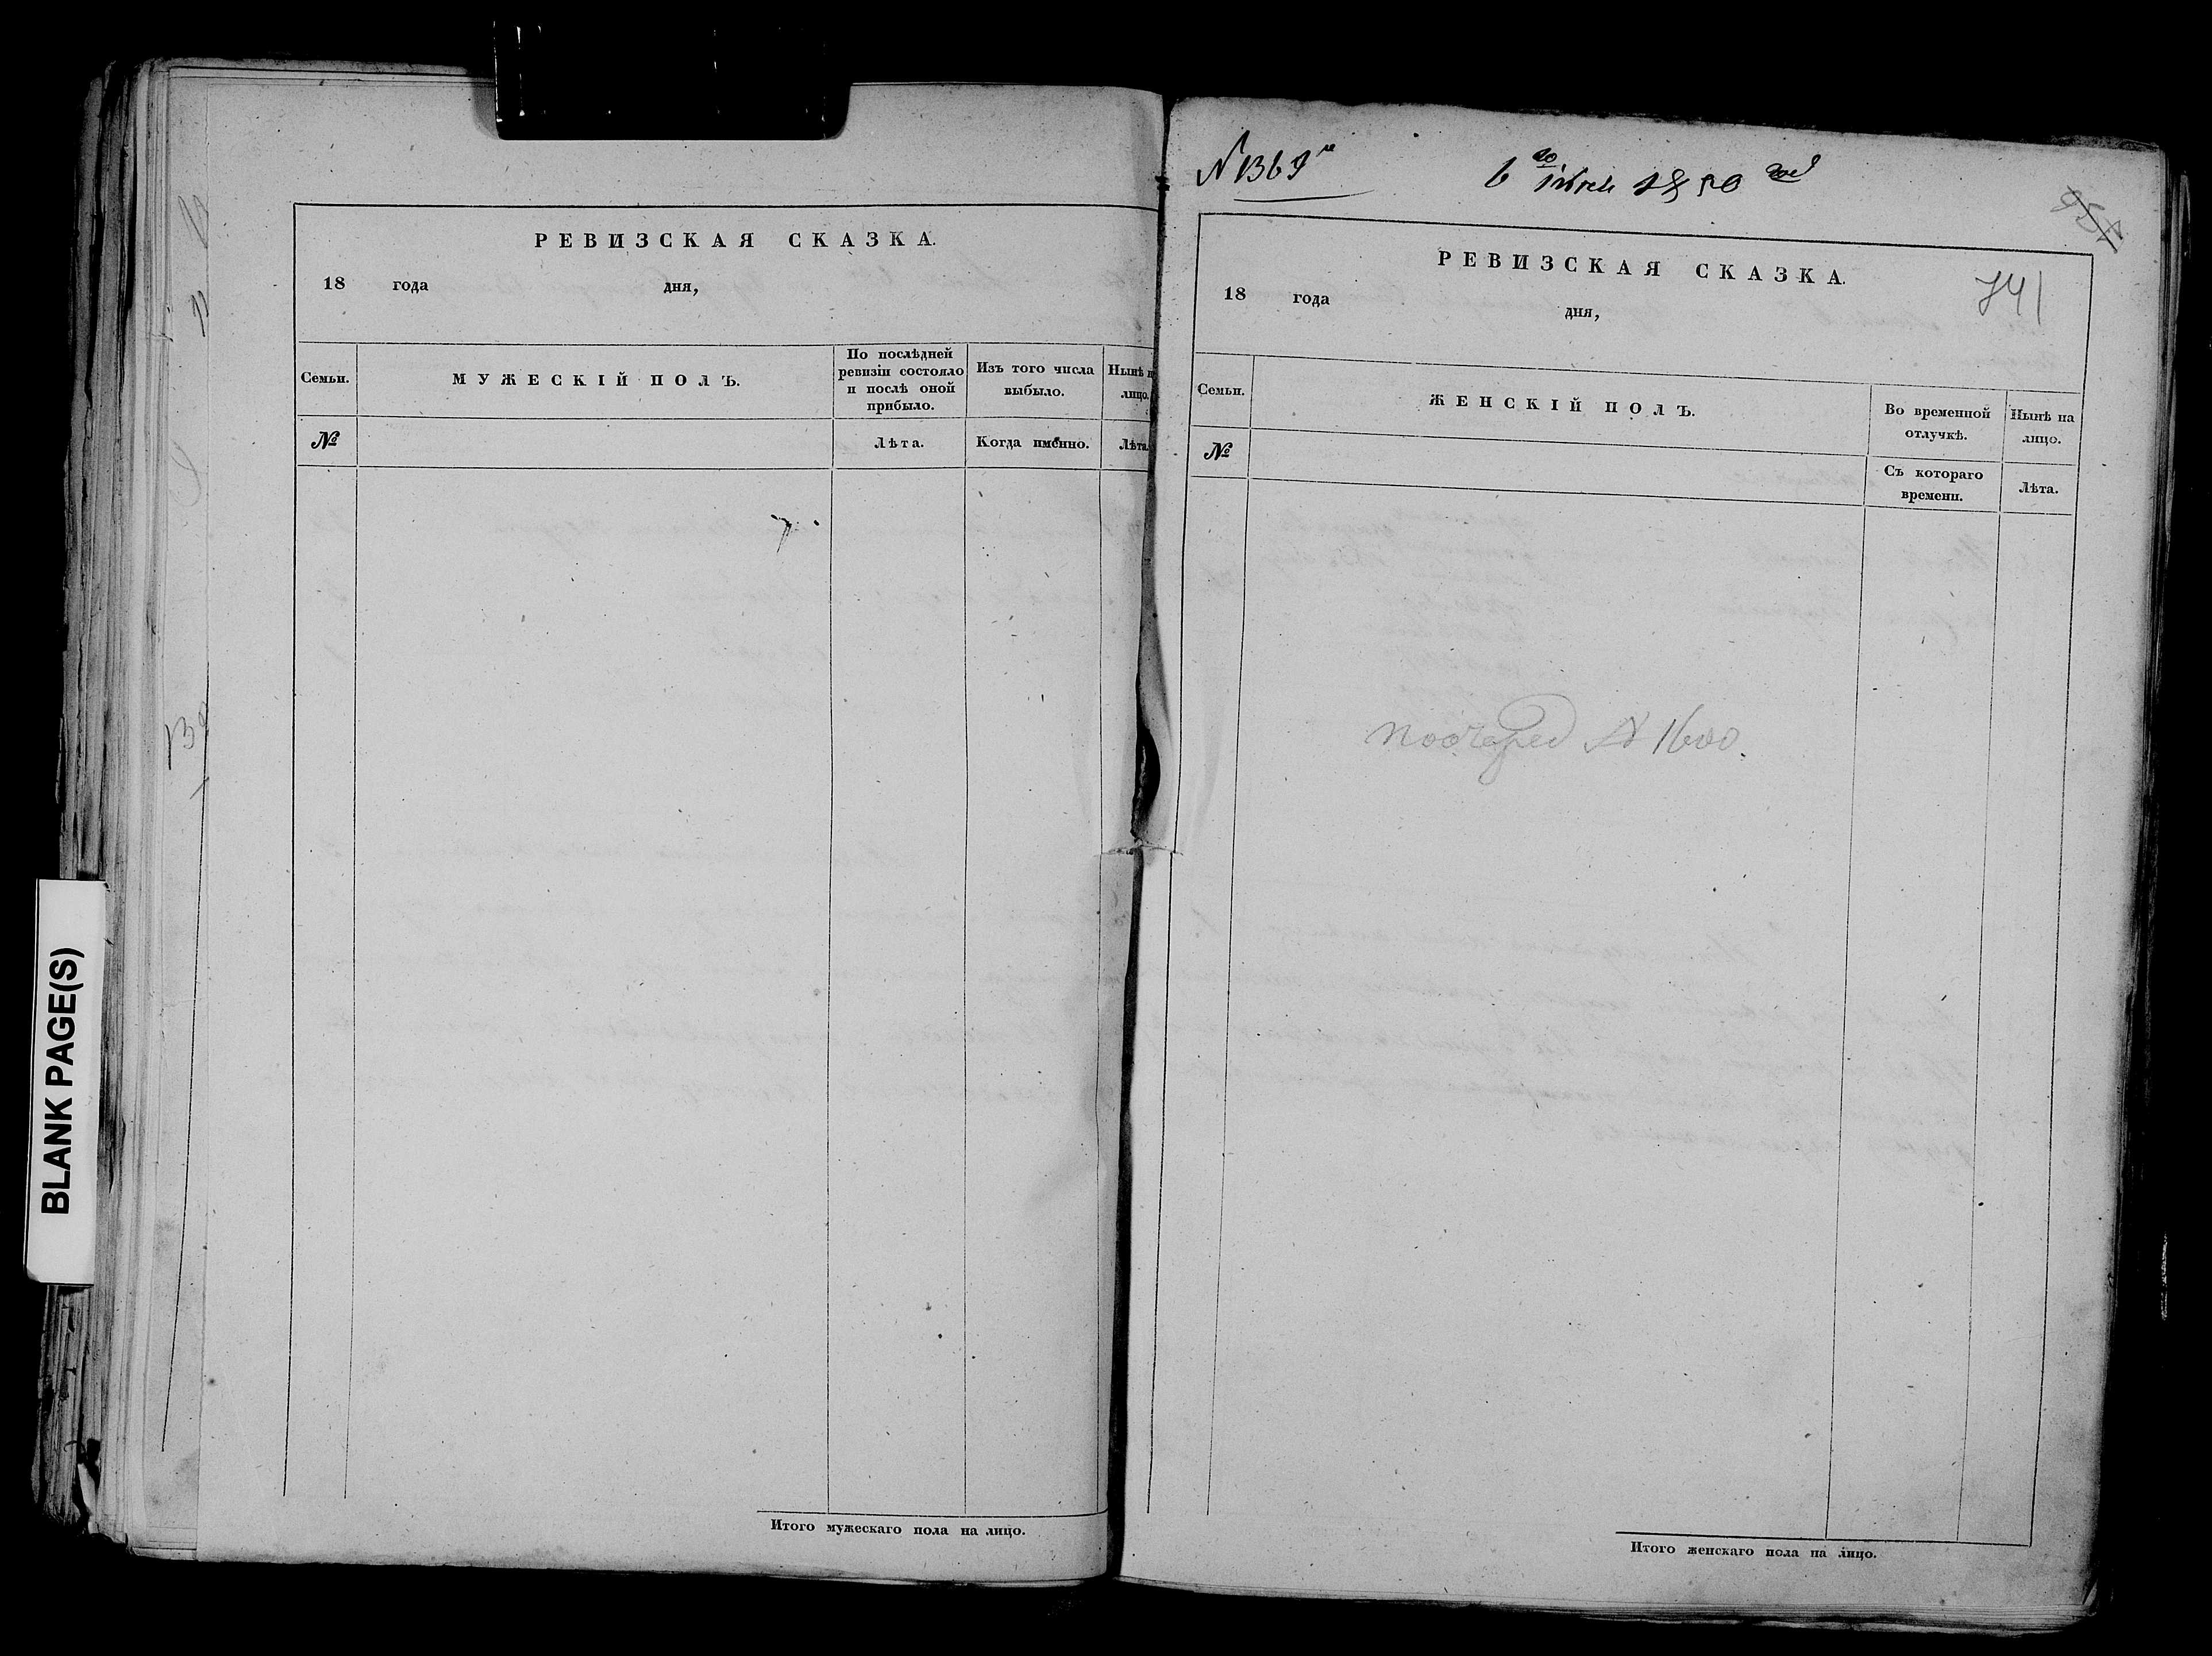 РЕВИЗСКАЯ СКАЗКА.
18 года дня,
Семьи.
МУЖЕСКІЙ ПОЛЪ.
По послѣдней
ревизіи состояло
и послѣ оной
прибыло.
Изъ того числа
выбыло.
Нынѣ н
лицо.
№
Лѣта.
Когда именно.
Лѣта
Итого мужескаго пола на лицо.
N 1369
6го Іюня 1850 года
741
РЕВИЗСКАЯ СКАЗКА.
18 года дня,
Семьи.
ЖЕНСКІЙ ПОЛЪ.
Во временной
отлучкѣ.
Нынѣ на
лицо.
№
Съ котораго
времени.
Лѣта.
N 1600.
Итого женскаго пола на лицо.
BLANK PAGE(S)